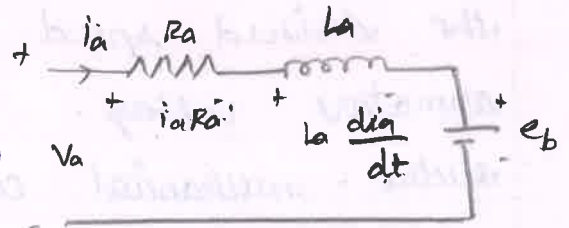 + ia Ra La
+ iaRa + La dia/dt + eb
Va -
-